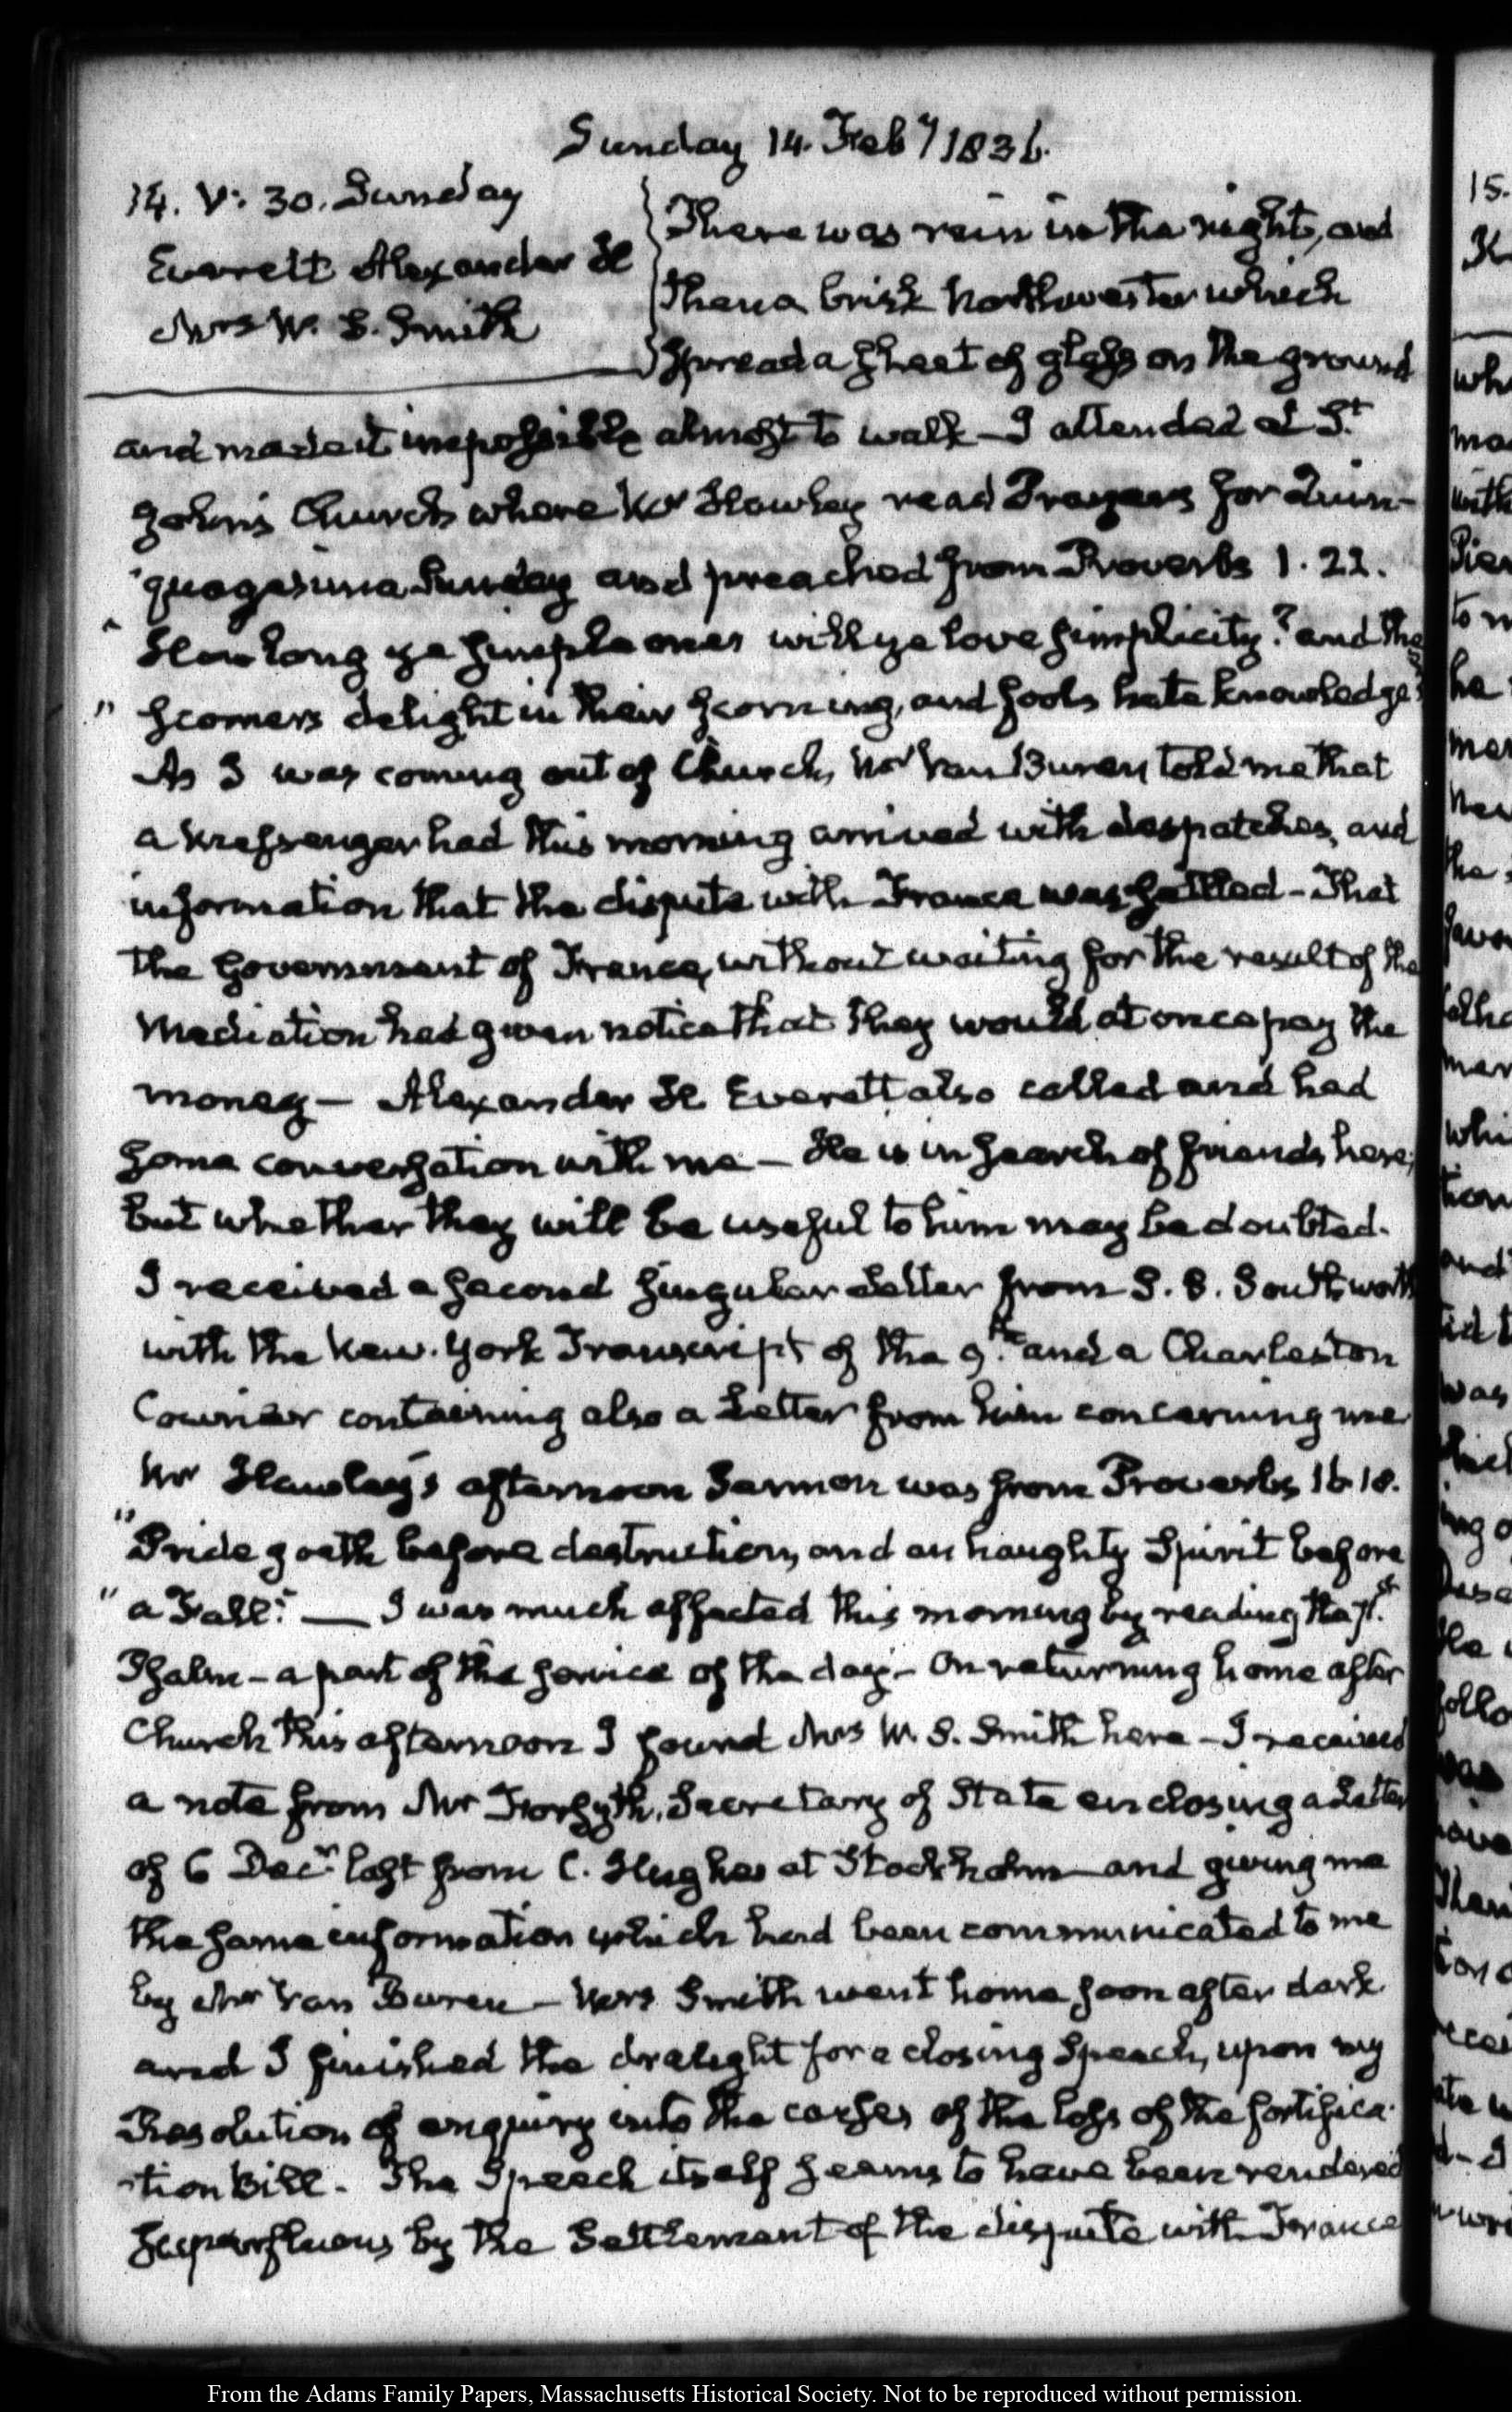 Sunday 14. Feby 1836.
14. V: 30. Sunday
Everett Alexander H
Mrs W. S. Smith
There was rain in the night, and
then a brisk Northwester which
spread a sheet of glass on the ground
and made it impossible almost to walk — I attended at St.
John's Church where Mr Hawley read Prayers for Quin-
quagesima Sunday and preached from Proverbs 1. 22.
"How long ye simple ones will ye love simplicity? and the
" scorners delight in their scorning, and fools hate knowledge?
As I was coming out of Church, Mr Van Buren told me that
a Messenger had this morning arrived with despatches, and
information that the dispute with France was settled — That
the Government of France, without waiting for the result of the
Mediation had given notice that they would at once pay the
money — Alexander H Everett also called and had
some conversation with me — He is in search of friends here;
but whether they will be useful to him may be doubted.
I received a second singular Letter from S. B. Southworth
with the New-York Transcript of the 9th. and a Charleston
Courier containing also a Letter from him concerning me
Mr Hawley's afternoon Sermon was from Proverbs 16 18.
"Pride goeth before destruction, and an haughty Spirit before
" a Fall." — I was much affected this morning by reading the 71st.
Psalm — a part of the service of the day — On returning home after
Church this afternoon I found Mrs W. S. Smith here — I received
a note from Mr Forsyth, Secretary of State enclosing a Letter
of 6 Decr. last from C. Hughes at Stockholm — and giving me
the same information which had been communicated to me
by Mr Van Buren — Mrs Smith went home soon after dark
and I finished the draught for a closing Speech, upon my
Resolution of enquiry into the causes of the loss of the fortifica-
-tion Bill. The Speech itself seems to have been rendered
superfluous by the Settlement of the dispute with France
From the Adams Family Papers, Massachusetts Historical Society. Not to be reproduced without permission.